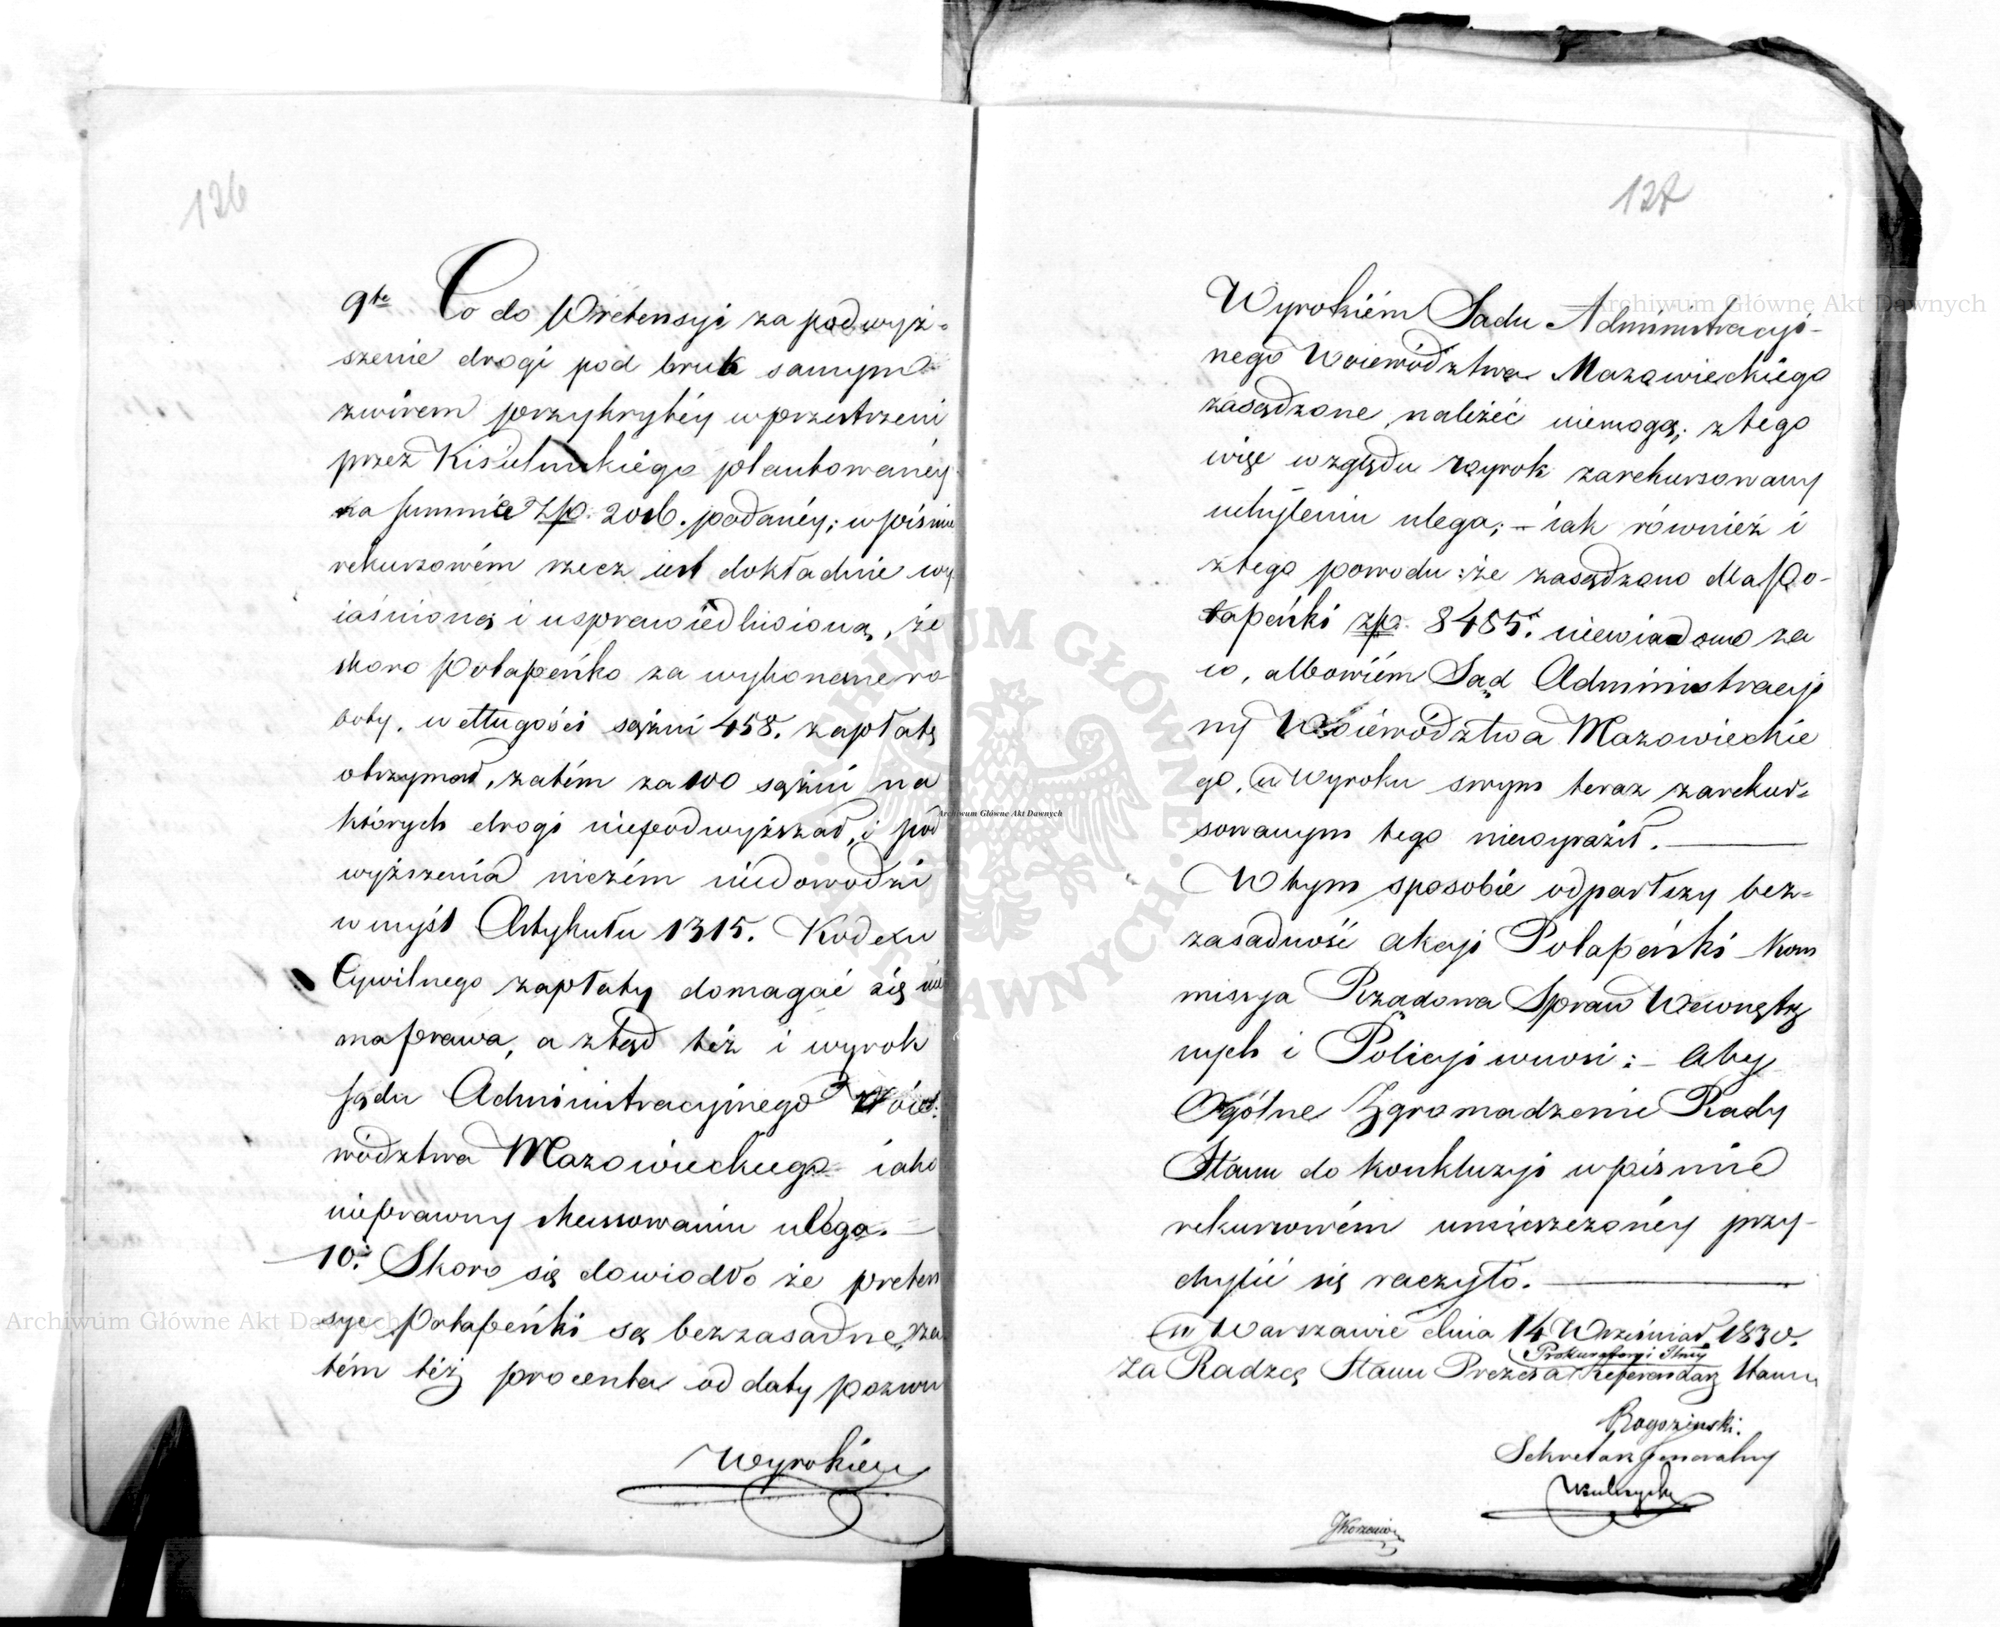 126
9te Co do Pretensyi za podwyż-
szenie drogi pod bruk samym
zwirem przykrytéy w przestrzeni
przez Kisielnickiego plantowanéy
na summie Zło. podanéy; w piśmie
rekursowém rzecz iest dokładnie wy-
iaśnioną i usprawiedliwioną, że
skoro Potapeńko za wykonane ro
boty, w długości sążni 458. zapłatę
otrzymał, zatém za 100 sążni na
których drogi niepodwyższał, i pod
wyższenia niczém niedowodzi
w myśl Artykułu 1315. Kodexu
Cywilnego zapłaty domagać się nie
ma prawa, a ztąd też i wyrok
sądu Administracyinego Woie-
wództwa Mazowieckiego iako
nieprawny skassowaniu ulega. —
10. Skoro się dowiodło że preten
sye Potapeńki są bezzasadne, za
tém też procenta od daty pozwu
Wyrokiem
127
Wyrokiém Sadu Administracyi-
nego Woiewództwa Mazowieckiégo
zasądzone, należéć niemogą; ztego
więc względu wyrok zarekursowany
uchyleniu ulega; – iak również i
ztego powodu: że zasądzono dla Po-
tapeńki zło. 8485. niewiadomo za
co, albowiém Sąd Administracyi
ny Woiéwództwa Mazowieckie
go, w Wyroku swym teraz zarekur-
sowanym tego niewyraził. —
W tym sposobie odpartszy bez-
zasadność akcyi Potapeńki Kom
missya Rządowa Spraw Wewnętrz
nych i Policyi wnosi: – Aby
Ogólne Zgromadzenie Rady
Stanu do konkluzyi w piśmie
rekursowém umieszczonéy przy-
chylić się raczyło. —
w Warszawie dnia 14 Września 1830.
Prokuratoryi
Za Radzcę Stanu Prezesa Referendarz Stanu
Rogoziński.
Sekretarz Jeneralny
Archiwum Główne Akt Dawnych
Archiwum Główne Akt Dawnych
Archiwum Główne Akt Dawnych
ARCHIWUM GŁÓWNE AKT DAWNYCH